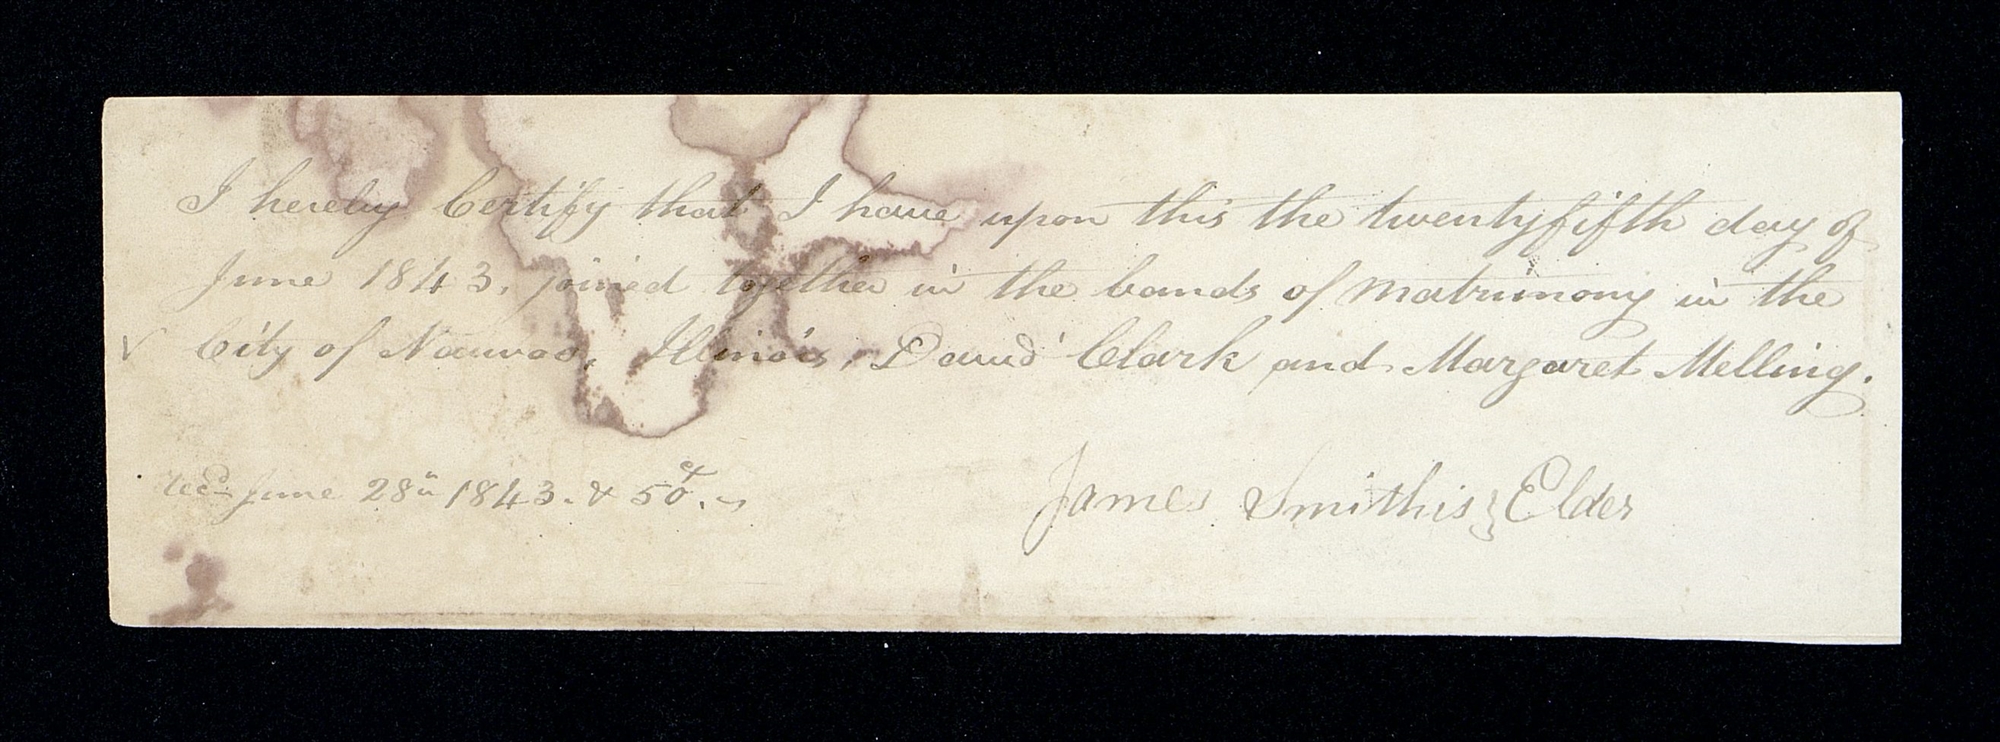 I hereby Certify that I have upon this the twentyfifth day of
June 1843, joined together in the bands of Matrimony in the
City of Nauvoo, Illinois, David Clark and Margaret Melling.
James Smithis } Elder
Recd June 28th 1843. & 50c.